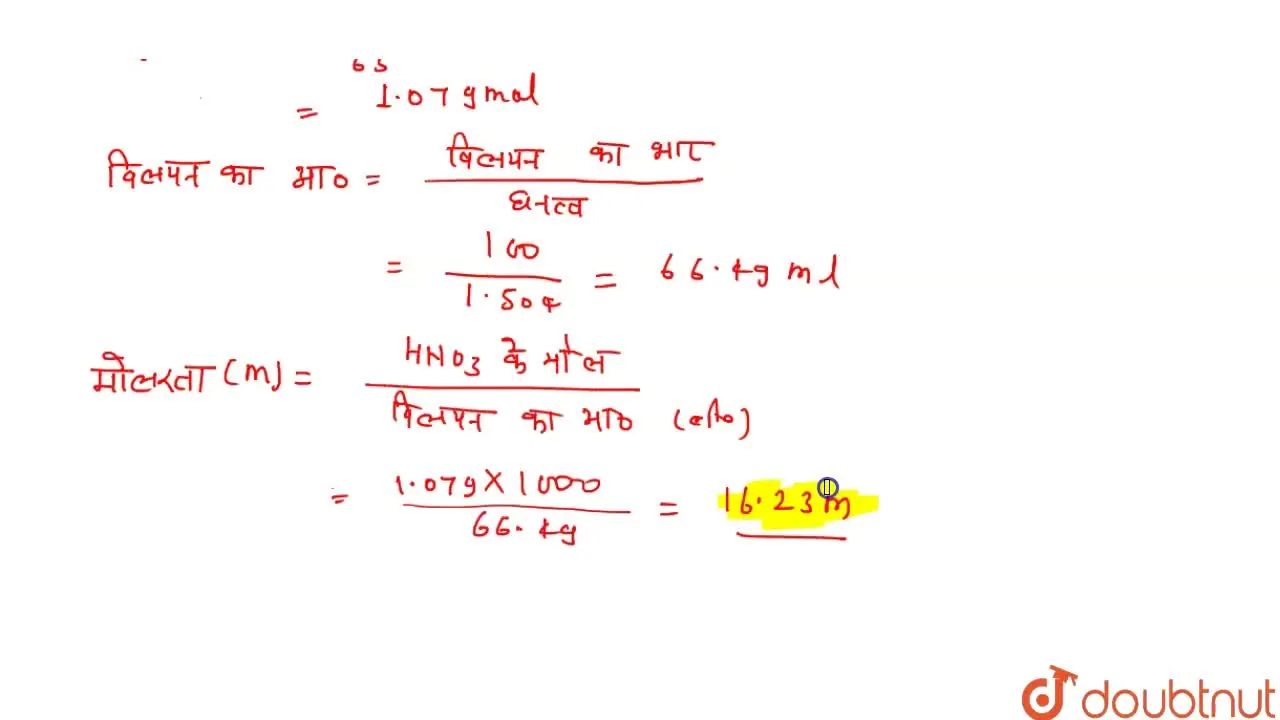 63
= 1.079 mol
विलयन का आ० = विलयन का भार
घनत्व
= 100 / 1.504 = 66.49 ml
मोलरता (m) = HNO3 के मोल
विलयन का आ० (ली०)
= 1.079 X 1000 / 66.49 = 16.23 m
doubtnut